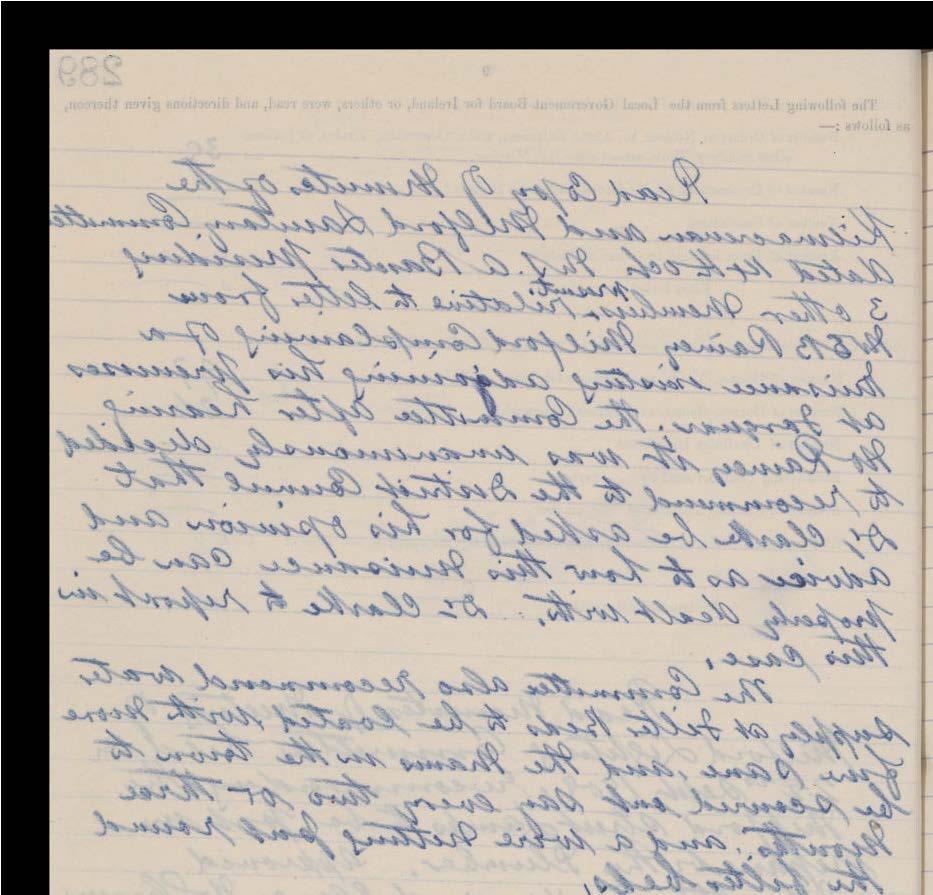 289
9
The following Letters from the Local Government Board for Ireland, or others, were read, and directions given thereon,
as follows :—
Read Copy of Minutes of the
Kilmacrenan and Milford Sanitary Committee
dated 14th Oct. Wm. J. a Banter Presiding
3 other Members present. Relative to letter from
W E B Rainey Milford Complaining of a
Nuisance existing adjoining his Premises
at The Committee after hearing
Mr Rainey it was unanimously decided
to recommend to the District Council that
Dr, Clarke be asked for his opinion and
advice as to how this Nuisance can be
properly dealt with. Dr Clarke to report in
this Case.
The Committee also recommend water
supply at Filter Beds to be coated with more
fine sand, and the Mains in the Town to
be scoured out say every two or three
Months. and a wire netting put round
the Filter Beds.